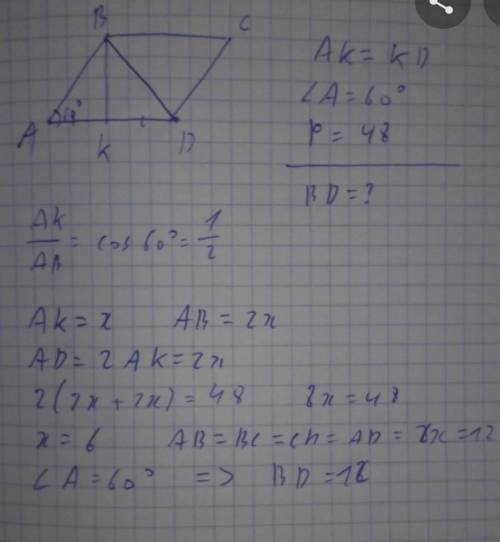 B C
A 60° K D
AK = KD
∠A = 60°
P = 48
BD = ?
AK/AB = cos 60° = 1/2
AK = x AB = 2x
AD = 2AK = 2x
2(2x + 2x) = 48 8x = 48
x = 6 AB = BC = CD = AD = 2x = 12
∠A = 60° => BD = 12